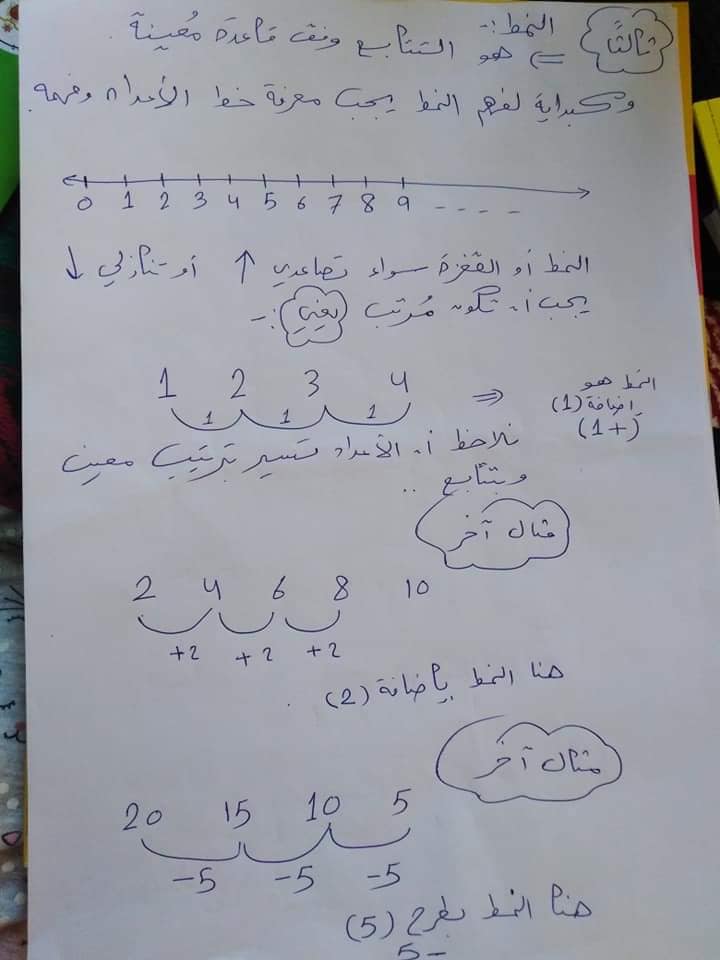 ثالثًا
النمط :-
=> هو التتابع وفق قاعدة مُعينة .
وكبداية لفهم النمط يجب معرفة خط الأعداد وفهمه
0 1 2 3 4 5 6 7 8 9 - - - -
النمط أو القفزة سواء تصاعدي ↑ أو تنازلي ↓
يجب أن تكون مُرتب يعني :-
1 2 3 4 => النمط هو
1 1 1 إضافة (1)
(+1)
نلاحظ أن الأعداد تسير بترتيب معين
وبتتابع ..
مثال آخر
2 4 6 8 10
+2 +2 +2
هنا النمط بإضافة (2) .
مثال آخر
20 15 10 5
-5 -5 -5
هنا النمط بطرح (5)
5-